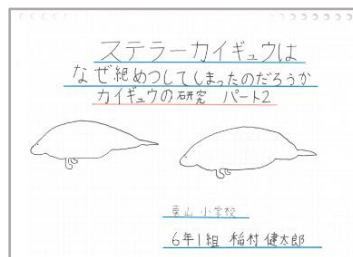 ステラーカイギュウは
なぜ絶めつしてしまったのだろうか
カイギュウの研究 パート2
小学校
6年1組 稲村 健太郎